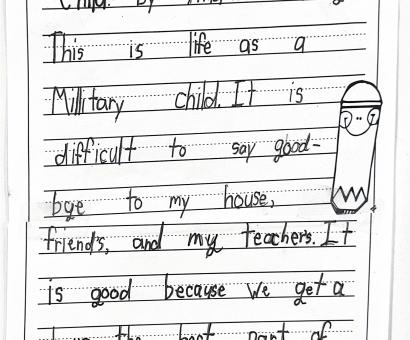 Child. By
This is life as a
Millitary child. It is
difficult to say good-
bye to my house,
friend's, and my teachers. It
is good because we get a
the best part of